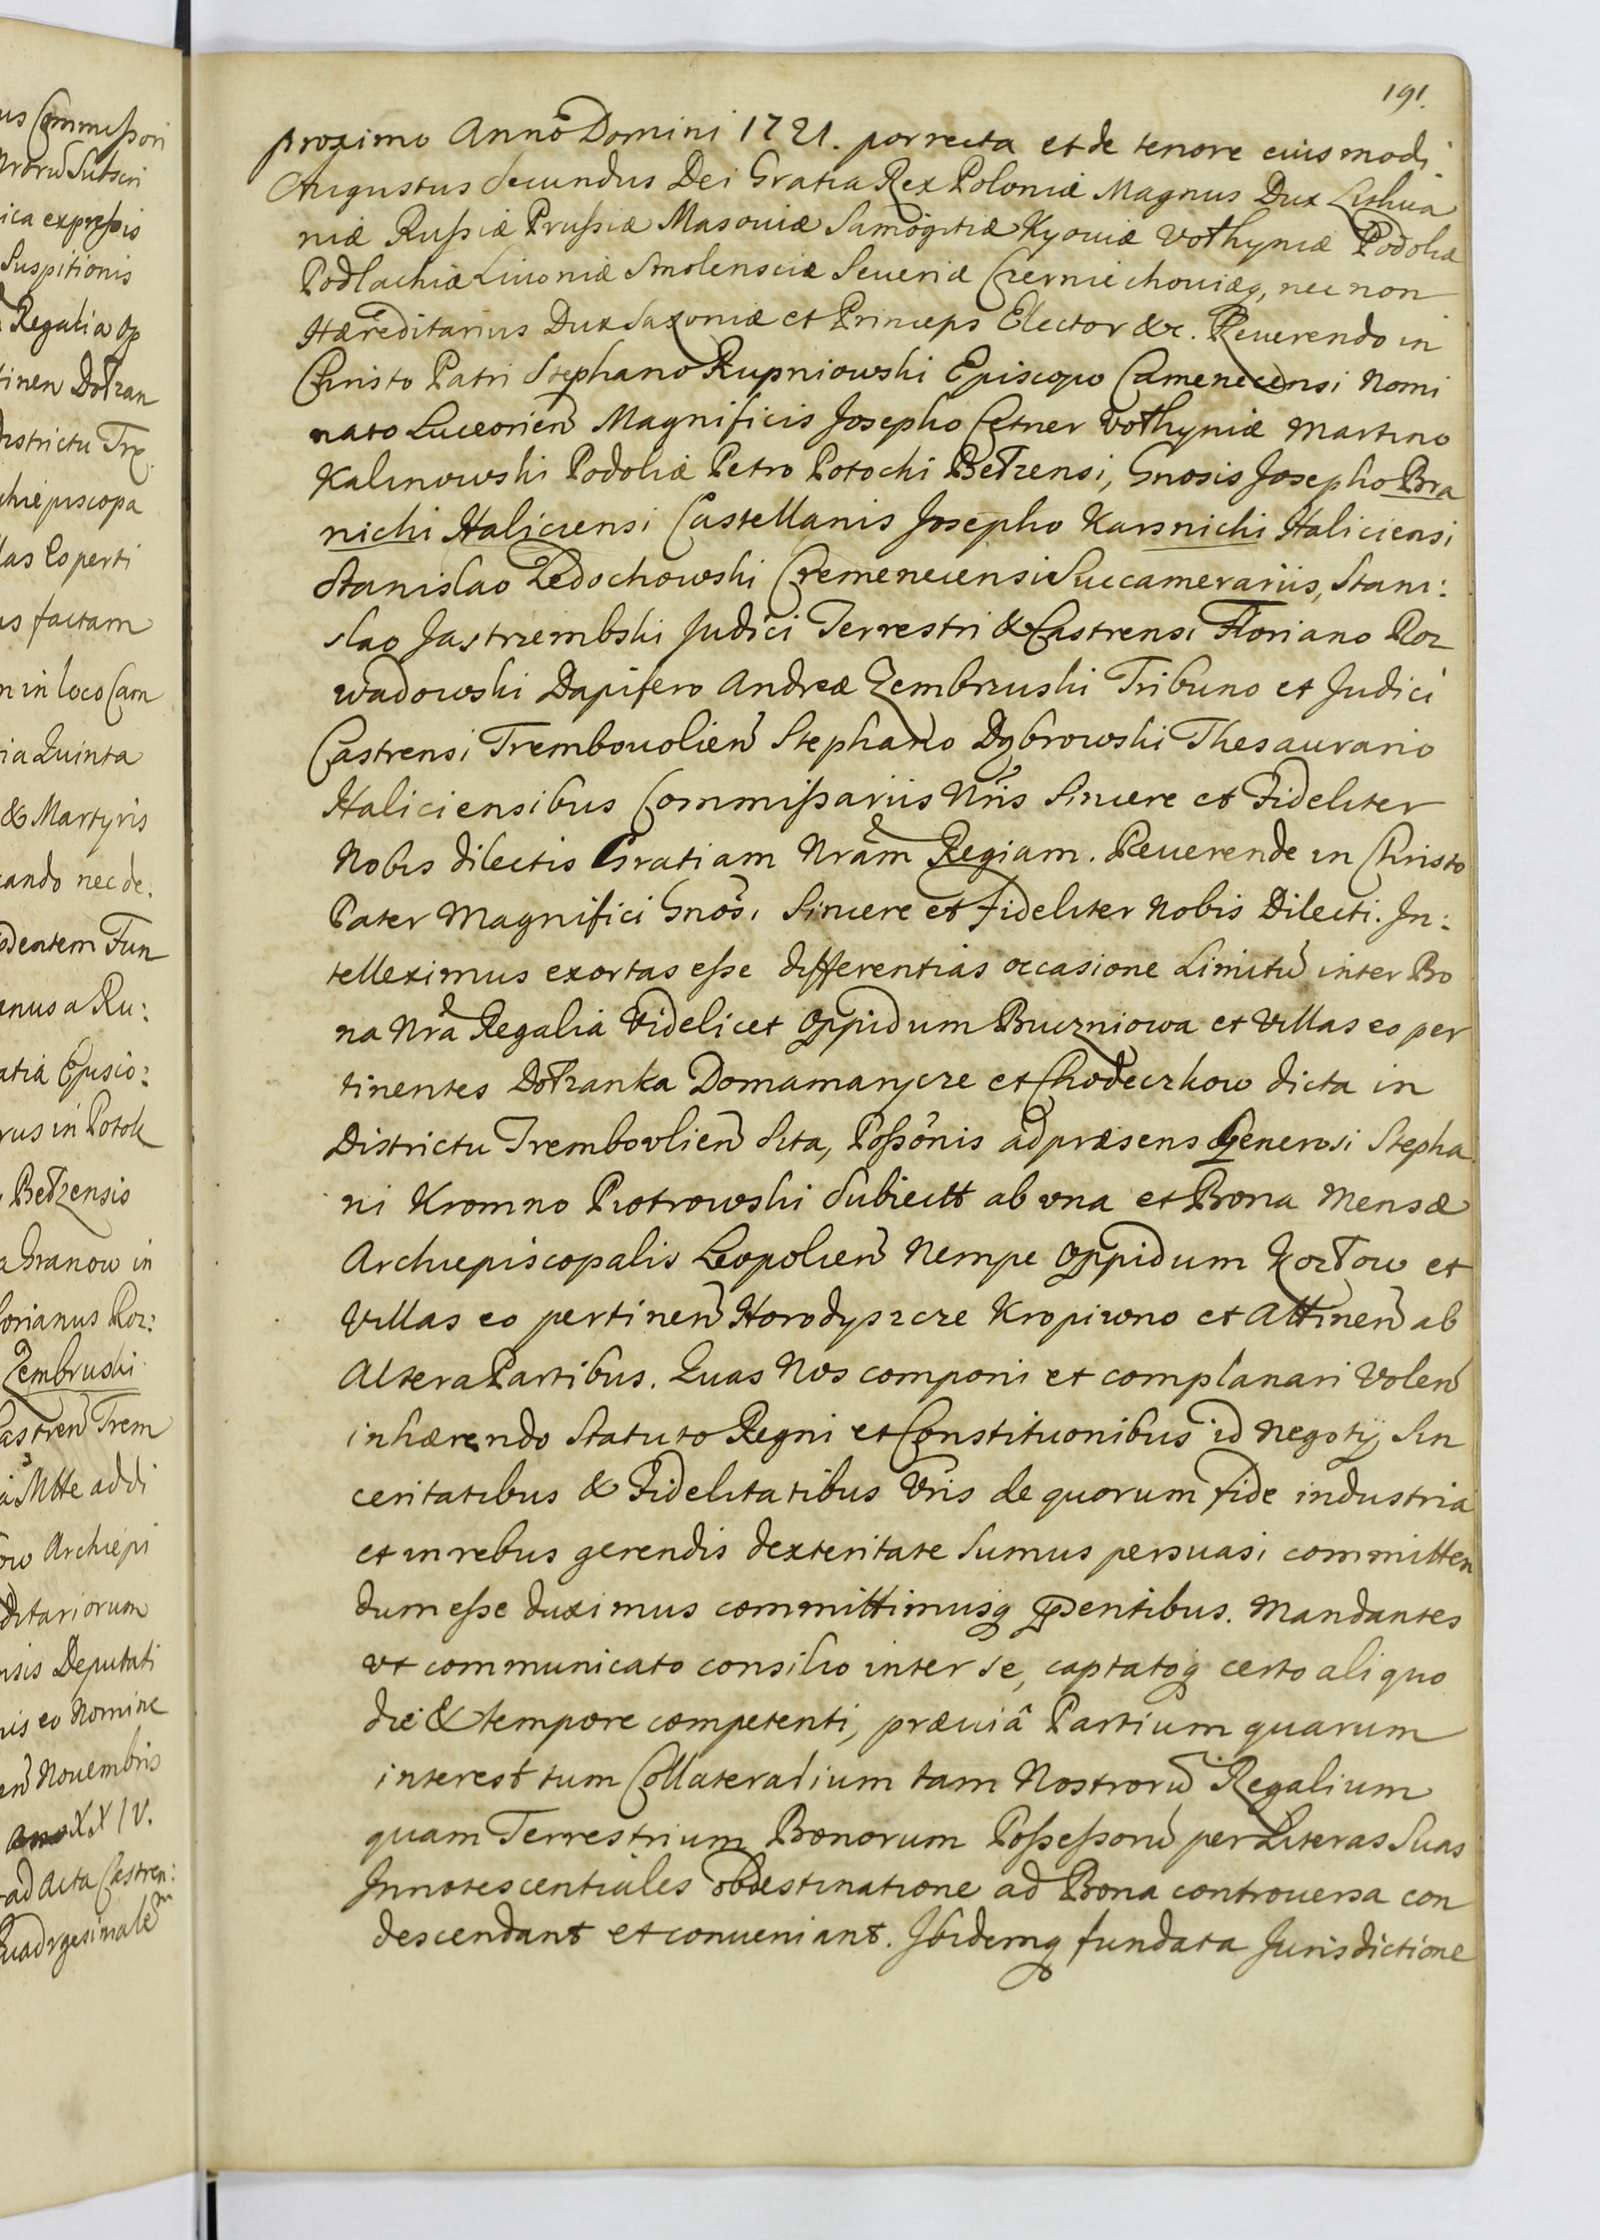 us Commissori
Nrorũ Subscri
ica expressis
Suspitionis
Regalia Op
tinen Dołzan
Districtu Tre
chiepiscopa
las Eo perti
us factam
n in loco Cam
ria Quinta
& Martyris
cando nec de.
odentem Fun
enus a Ru:
atia Episco:
rus in Potok
Bełzensis
a Granow in
lorianus Roz:
Zembrushi
Castreñ Trem
Mtte addi
ow Archiepi
ditariorum
nsis Deputati
nis eo Nomine
eñ Nouembris
XXIV.
ad Acta Castren:
Quadrgesimale m
191.
proximo Annô Domini 1721. porrecta et de tenore eiusmodi
Augustus Secundus Dei Gratia Rex Poloniæ Magnus Dux Lithua
niæ Russiæ Prussiæ Masouiæ Samogitiæ Kyouiæ Vołhyniæ Podoliæ
Podlachiæ Liuoniæ Smolensciæ Seueriæ Czerniechouiæq, nec non
Hæreditarius Dux Saxoniæ et Princeps Elector &c. Reuerendo in
Christo Patri Stephano Rupniowski Episcopo Camenecensi Nomi
nato Luceorieñ Magnificis Josepho Cetner Vołhyniæ Martino
Kalinowski Podoliæ Petro Potocki Bełzensi, Gnosis Josepho Bra
nicki Haliciensi Castellanis Josepho Karsnicki Haliciensi
Stanislao Ledochowski Cremenecensi Succamerariis, Stani:
slao Jastrzembski Judici Terrestri & Castrensi Floriano Roz
wadowski Dapifero Andreæ Zembrzuski Tribuno et Judici
Castrensi Trembouolieñ Stephano Dąbrowski Thesaurario
Haliciensibus Commissariis Nris Sincere et Fideliter
Nobis dilectis Gratiam Nram Regiam. Reuerende in Christo
Pater Magnifici Gnosi Sincere et Fideliter Nobis Dilecti. In:
telleximus exortas esse differentias occasione Limitũ inter Bo
na Nra Regalia Videlicet Oppidum Buczniowa et Villas eo per
tinentes Dołzanka Domamarycze et Chodeczkow dicta in
Districtu Trembovlieñ Sita, Possonis ad præsens Generosi Stepha
ni Kromno Piotrowski Subiectt ab una et Bona Mensæ
Archiepiscopalis Leopolieñ Nempe Oppidum Kozłow et
Villas eo pertineñ Horodyszcze Kropiwno et Attineñ ab
Altera Partibus. Quas Nos componi et complanari Voleñ
inhærendo Statuto Regni et Constitutionibus id Negotij Sin
ceritatibus & Fidelitatibus Vris de quorum fide industria
et in rebus gerendis dexteritate Sumus persuasi committen
dum esse duximus committimusq pntibus. Mandantes
ut communicato consilio inter se, captatoq certo aliquo
die & tempore competenti, præuiâ Partium quarum
interest tum Collateralium tam Nostrorũ Regalium
quam Terrestrium Bonorum Possessorũ per Literas Suas
Innotescentiales obdestinatione ad Bona controuersa con
descendant et conueniant. Ibidemq fundata Jurisdictione